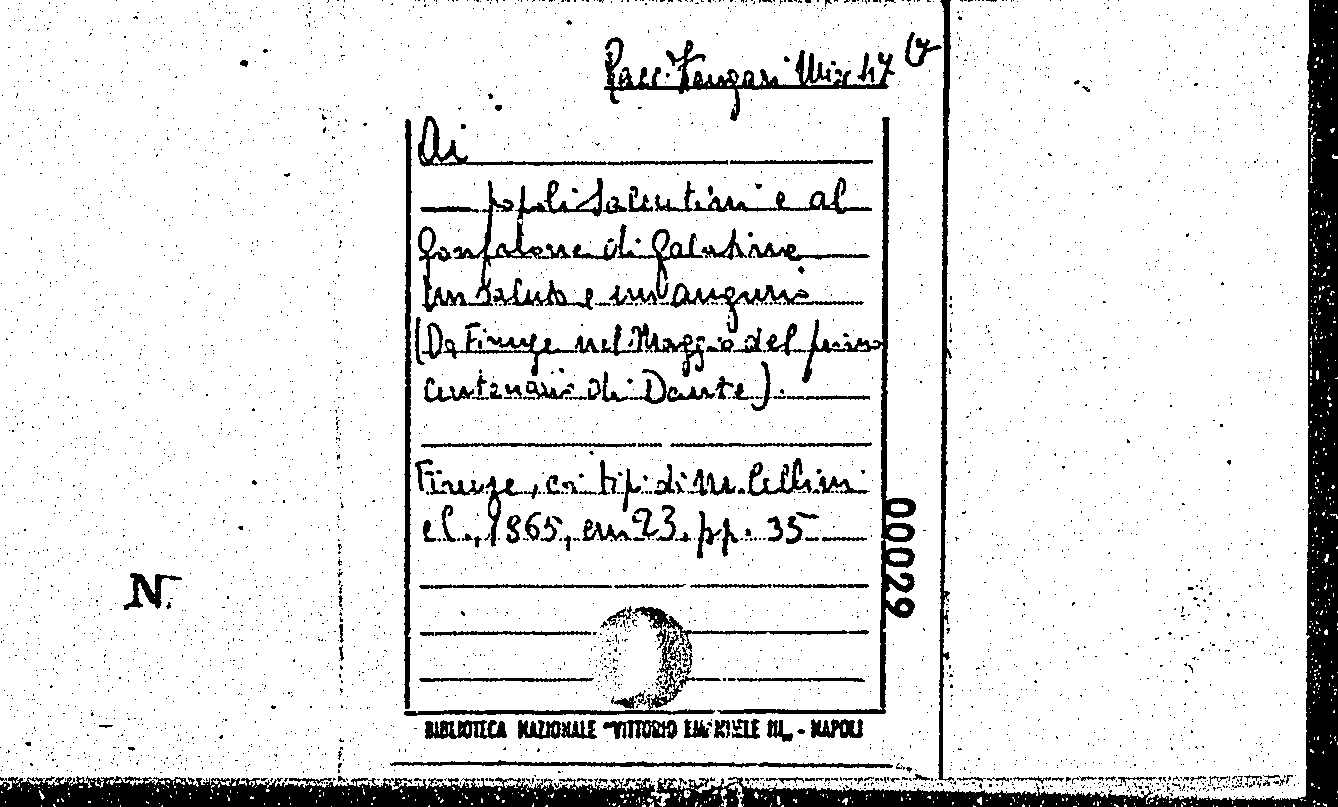 Racc. Zangari Misc. 47 (7
Ai
popoli Salentini e al
gonfalone di Galatina
un saluto e un augurio
(Da Firenze nel Maggio del primo
centenario di Dante).
Firenze, coi tipi di M. Cellini
e C., 1865, cm 23. pp. 35
00029
N.
BIBLIOTECA NAZIONALE "VITTORIO EMANUELE III„ - NAPOLI